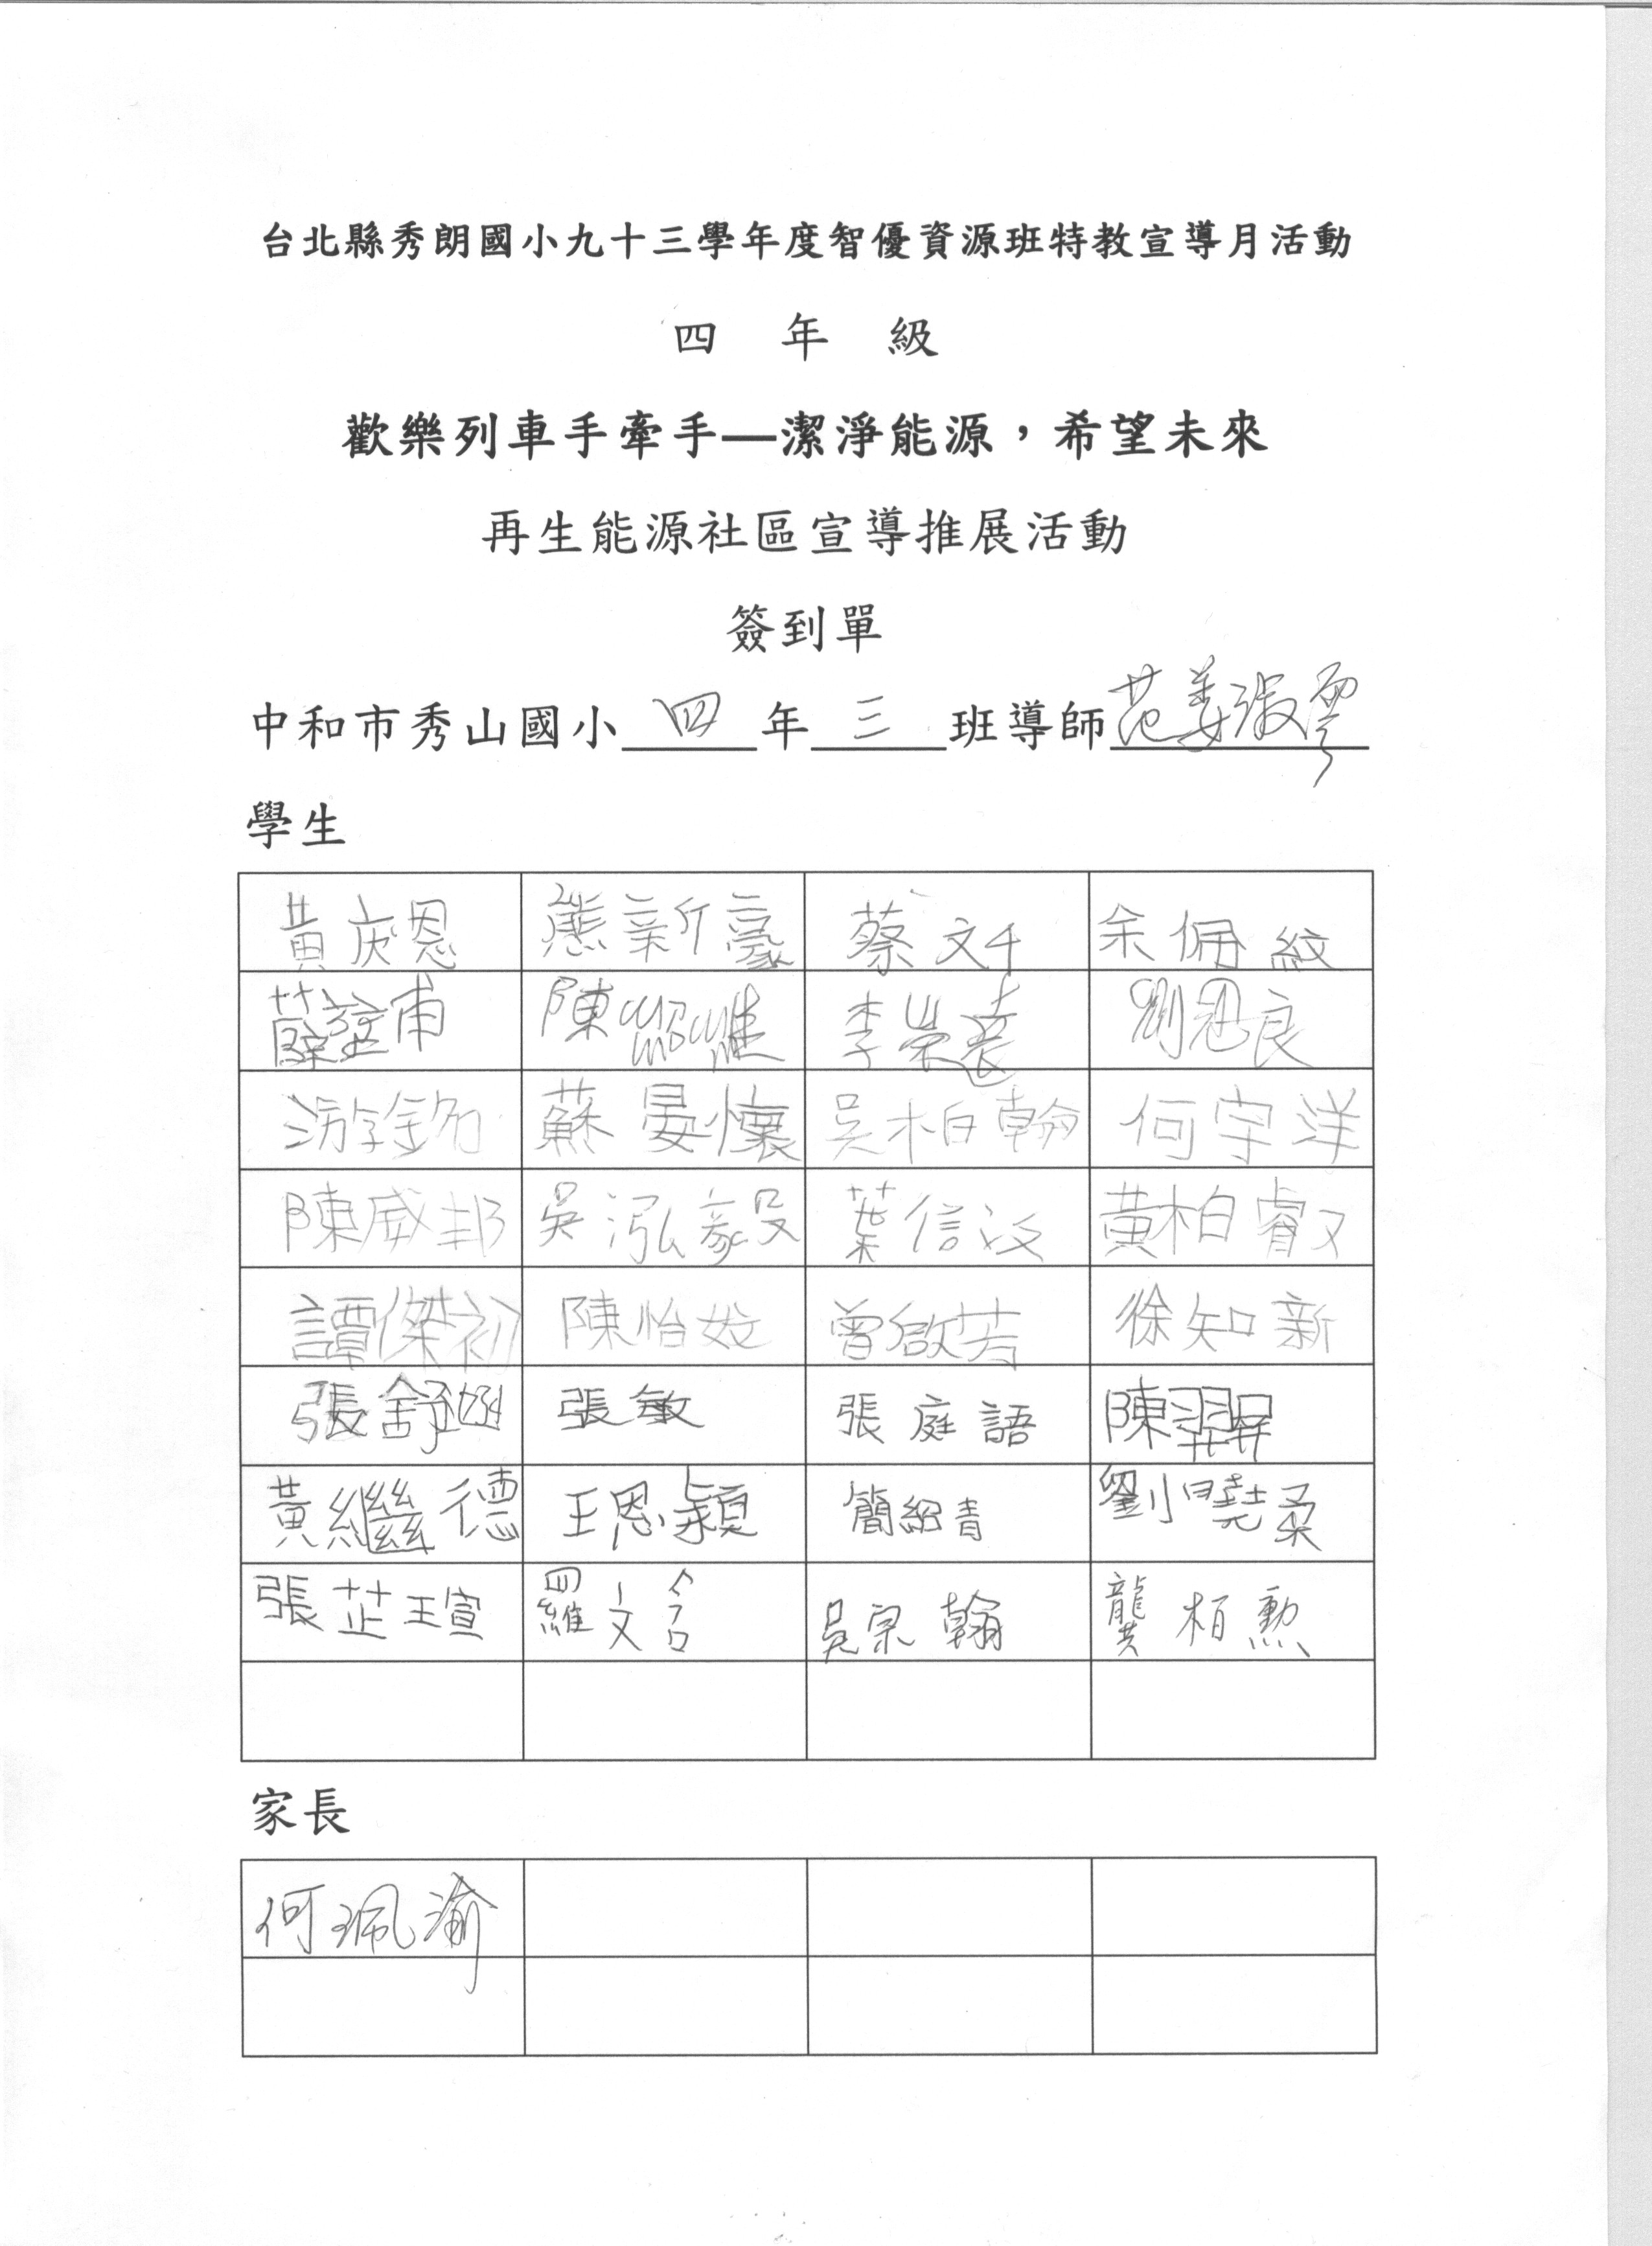 台北縣秀朗國小九十三學年度智優資源班特教宣導月活動
四 年 級
歡樂列車手牽手—潔淨能源，希望未來
再生能源社區宣導推展活動
簽到單
中和市秀山國小 四 年 三 班導師 范姜淑雲
學生
黃庆恩 熊新豪 蔡文千 余佩紋
薛 甫 陳 李榮遠 劉冠良
游 蘇晏懷 吳柏翰 何宇洋
陳威邦 吳泓毅 葉信 黃柏睿
譚傑初 陳怡妏 曾啟芳 徐知新
張舒 張敏 張庭語 陳羿屏
黃繼德 王恩穎 簡紹青 劉曉柔
張芷瑄 羅文 吳宗翰 龔柏勳
家長
何珮渝